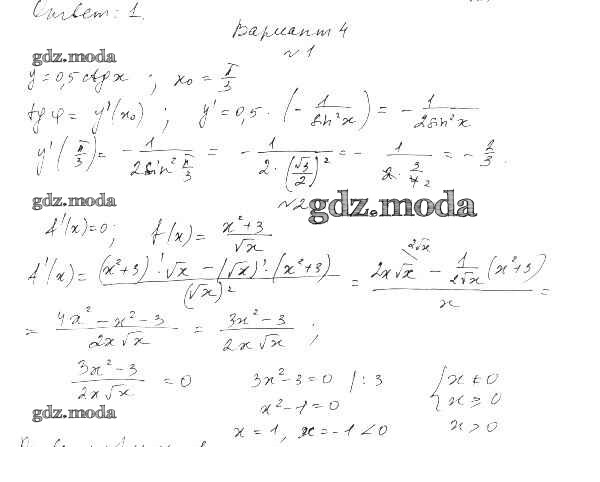 Ответ: 1.
Вариант 4
№ 1
gdz.moda
y = 0,5 ctg x ; x₀ = π/3
tg φ = y'(x₀) ; y' = 0,5 · (- 1/sin²x) = - 1/(2sin²x)
y'(π/3) = - 1/(2sin² π/3) = - 1/(2·(√3/2)²) = - 1/(2·3/4₂) = - 2/3.
gdz.moda
№ 2
gdz.moda
f'(x)=0; f(x) = (x²+3)/√x
f'(x) = ((x²+3)'·√x - (√x)'·(x²+3))/(√x)² = (2x√x - 1/(2√x) (x²+3))/x =
2√x
= (4x² - x² - 3)/(2x√x) = (3x² - 3)/(2x√x) ;
(3x² - 3)/(2x√x) = 0 3x² - 3 = 0 /: 3 { x ≠ 0
x² - 1 = 0 x ≥ 0
gdz.moda
x = 1, x = -1 < 0 x > 0